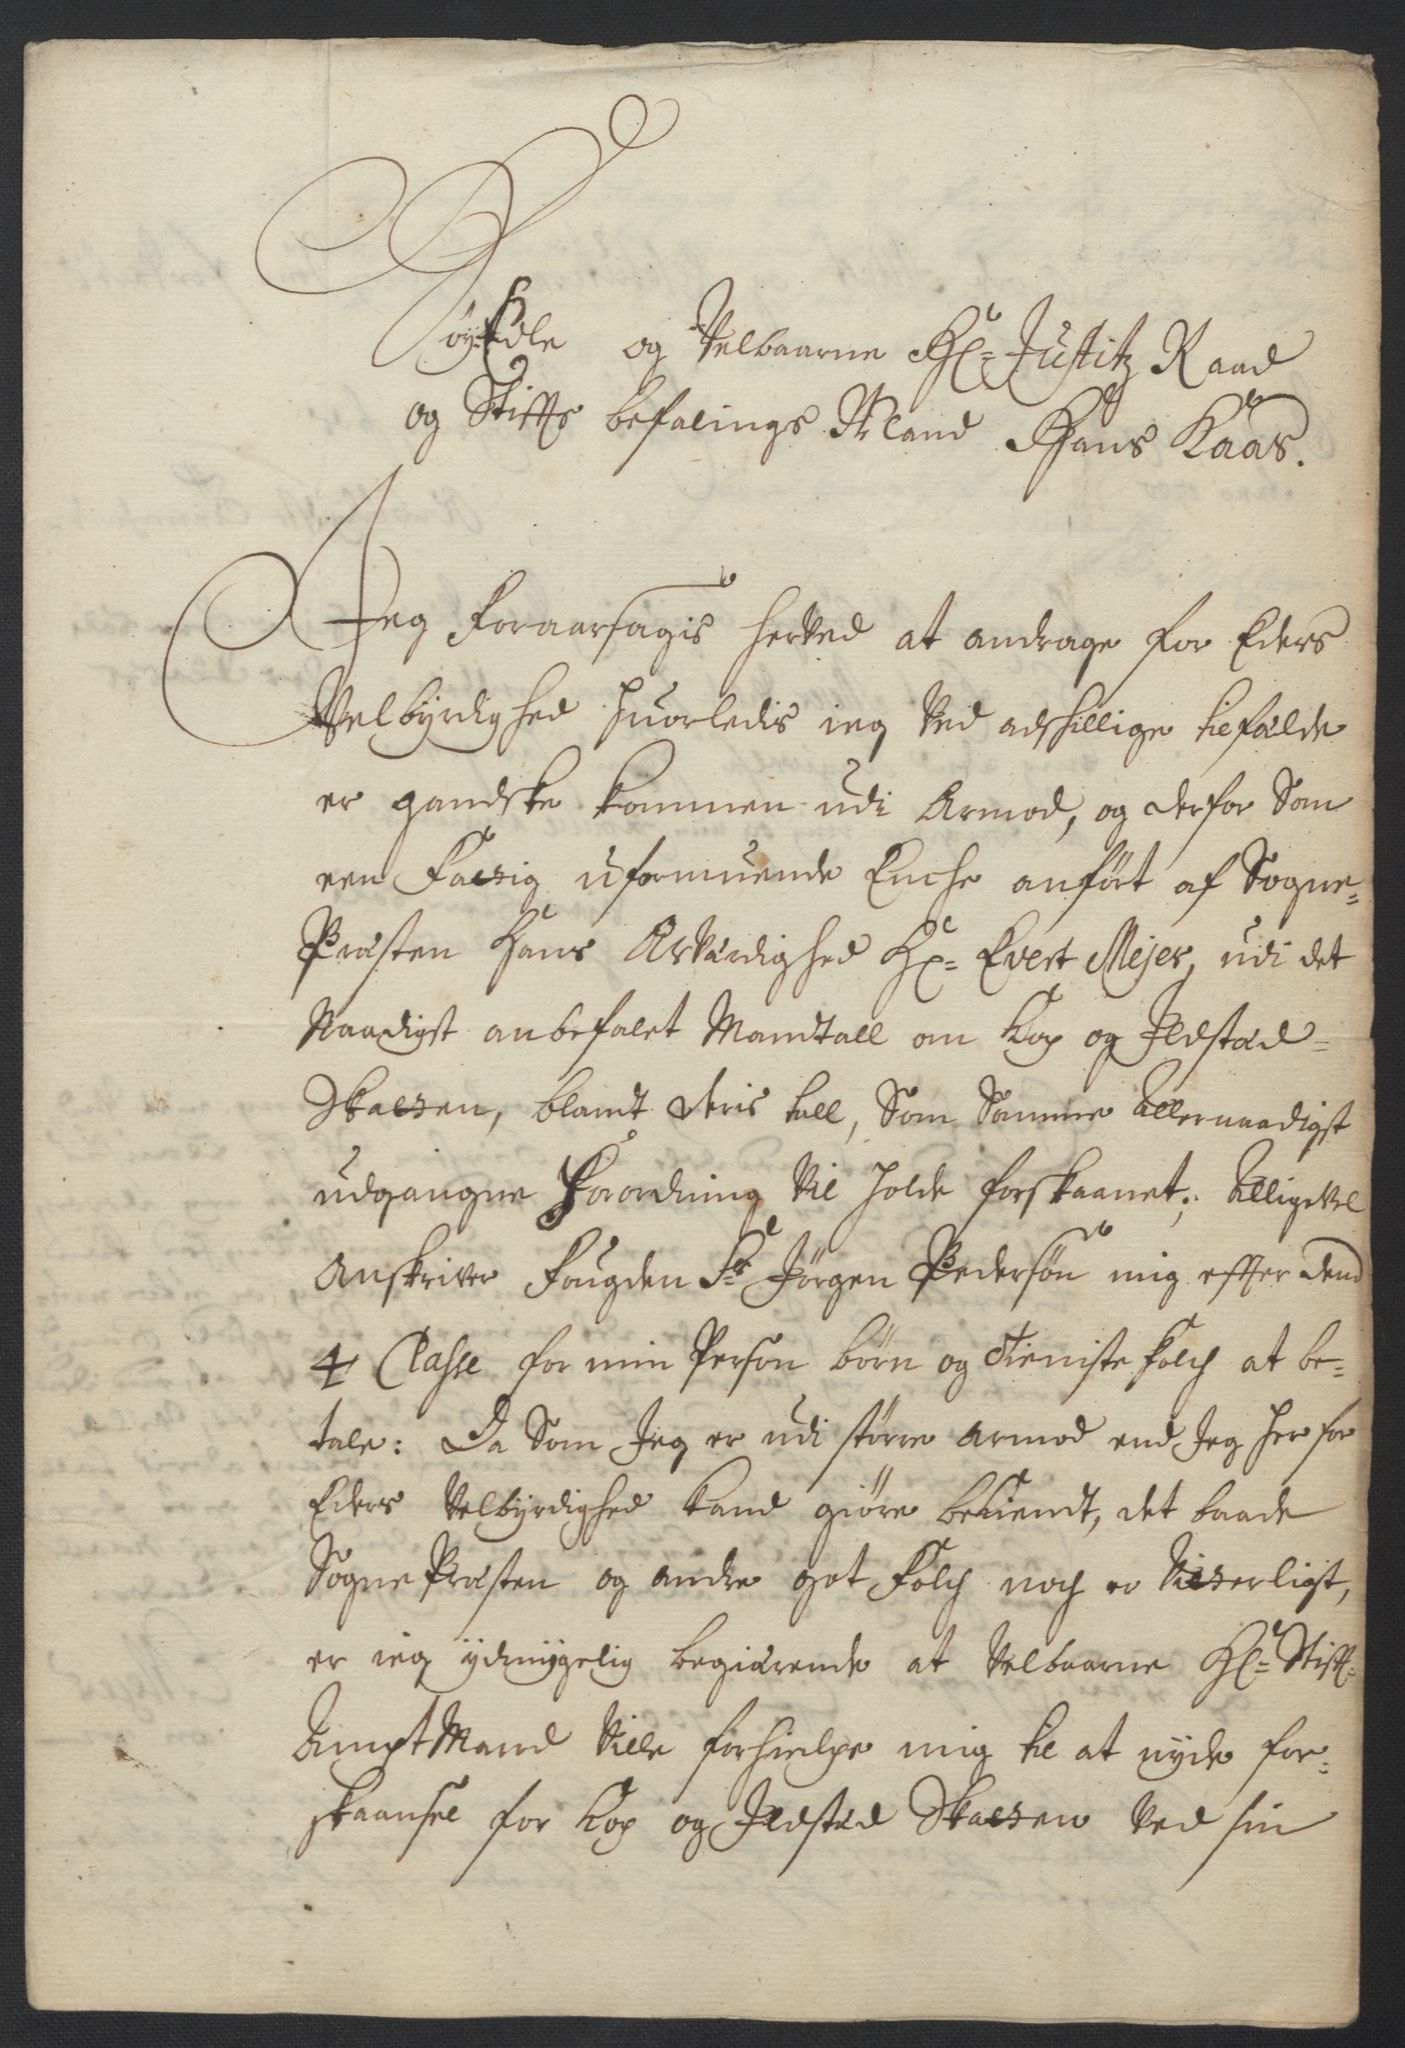 HøyEdle og Velbaarne Hr= Justitz Raad
og Stiffts befalings Mand Hans Kaas.
Jeg foraarsagis herved at andrage for Eders
Velbyrdighed huorledis ieg ved adskillige tilfælde
er gandske kommen udi Armod, og derfor Som
een fattig uformuende Enche anført af Sogne-
Præsten Hans Ærværdighed Hr= Evert Mejer, udi det
Naadigst anbefalet Mandtall om Kop og Ildstæd=
Skatten, blandt deris tall, Som Samme Allernaadigst
udgangne Forordning vil holde forskaanet; Alligevel
Anskriver Fougden Sr Jørgen Pedersøn mig effter dend
4 Classe for min Person børn og tieniste folch at be=
tale: Da Som Jeg er udi større armod end Jeg her for
Eders Velbyrdighed kand giøre bekiendt, det baade
Sogne Præsten og andre got folch noch er vitterligt,
er ieg ydmygelig begiærende at Velbaarne Hr= Stifft=
AmptMand ville forhielpe mig til at nyde for=
skaansel for Kop og Ildstæd Skatten ved sin